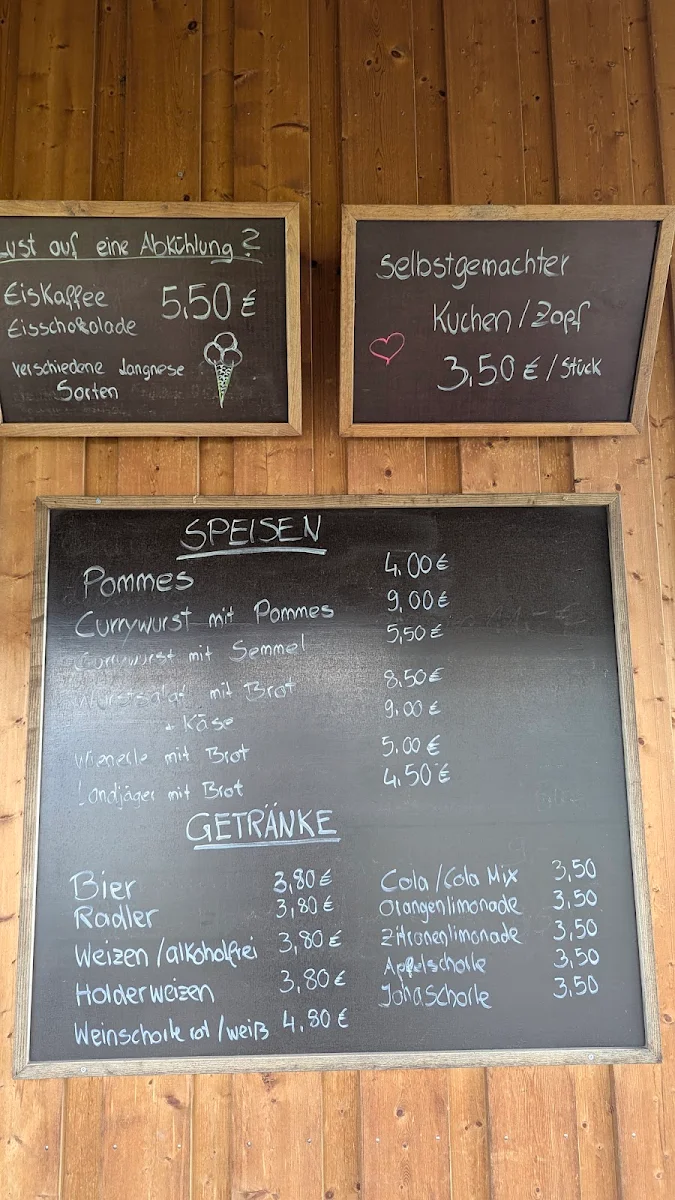 Lust auf eine Abkühlung?
Eiskaffee 5,50 €
Eisschokolade
verschiedene Langnese
Sorten
Selbstgemachter
Kuchen / Zopf
3,50 € / Stück
SPEISEN
Pommes 4,00 €
Currywurst mit Pommes 9,00 €
Currywurst mit Semmel 5,50 €
Wurstsalat mit Brot 8,50 €
+ Käse 9,00 €
Wienerle mit Brot 5,00 €
Landjäger mit Brot 4,50 €
GETRÄNKE
Bier 3,80 €
Radler 3,80 €
Weizen / alkoholfrei 3,80 €
Holderweizen 3,80 €
Weinschorle rot / weiß 4,80 €
Cola / Cola Mix 3,50
Orangenlimonade 3,50
Zitronenlimonade 3,50
Apfelschorle 3,50
JohaSchorle 3,50